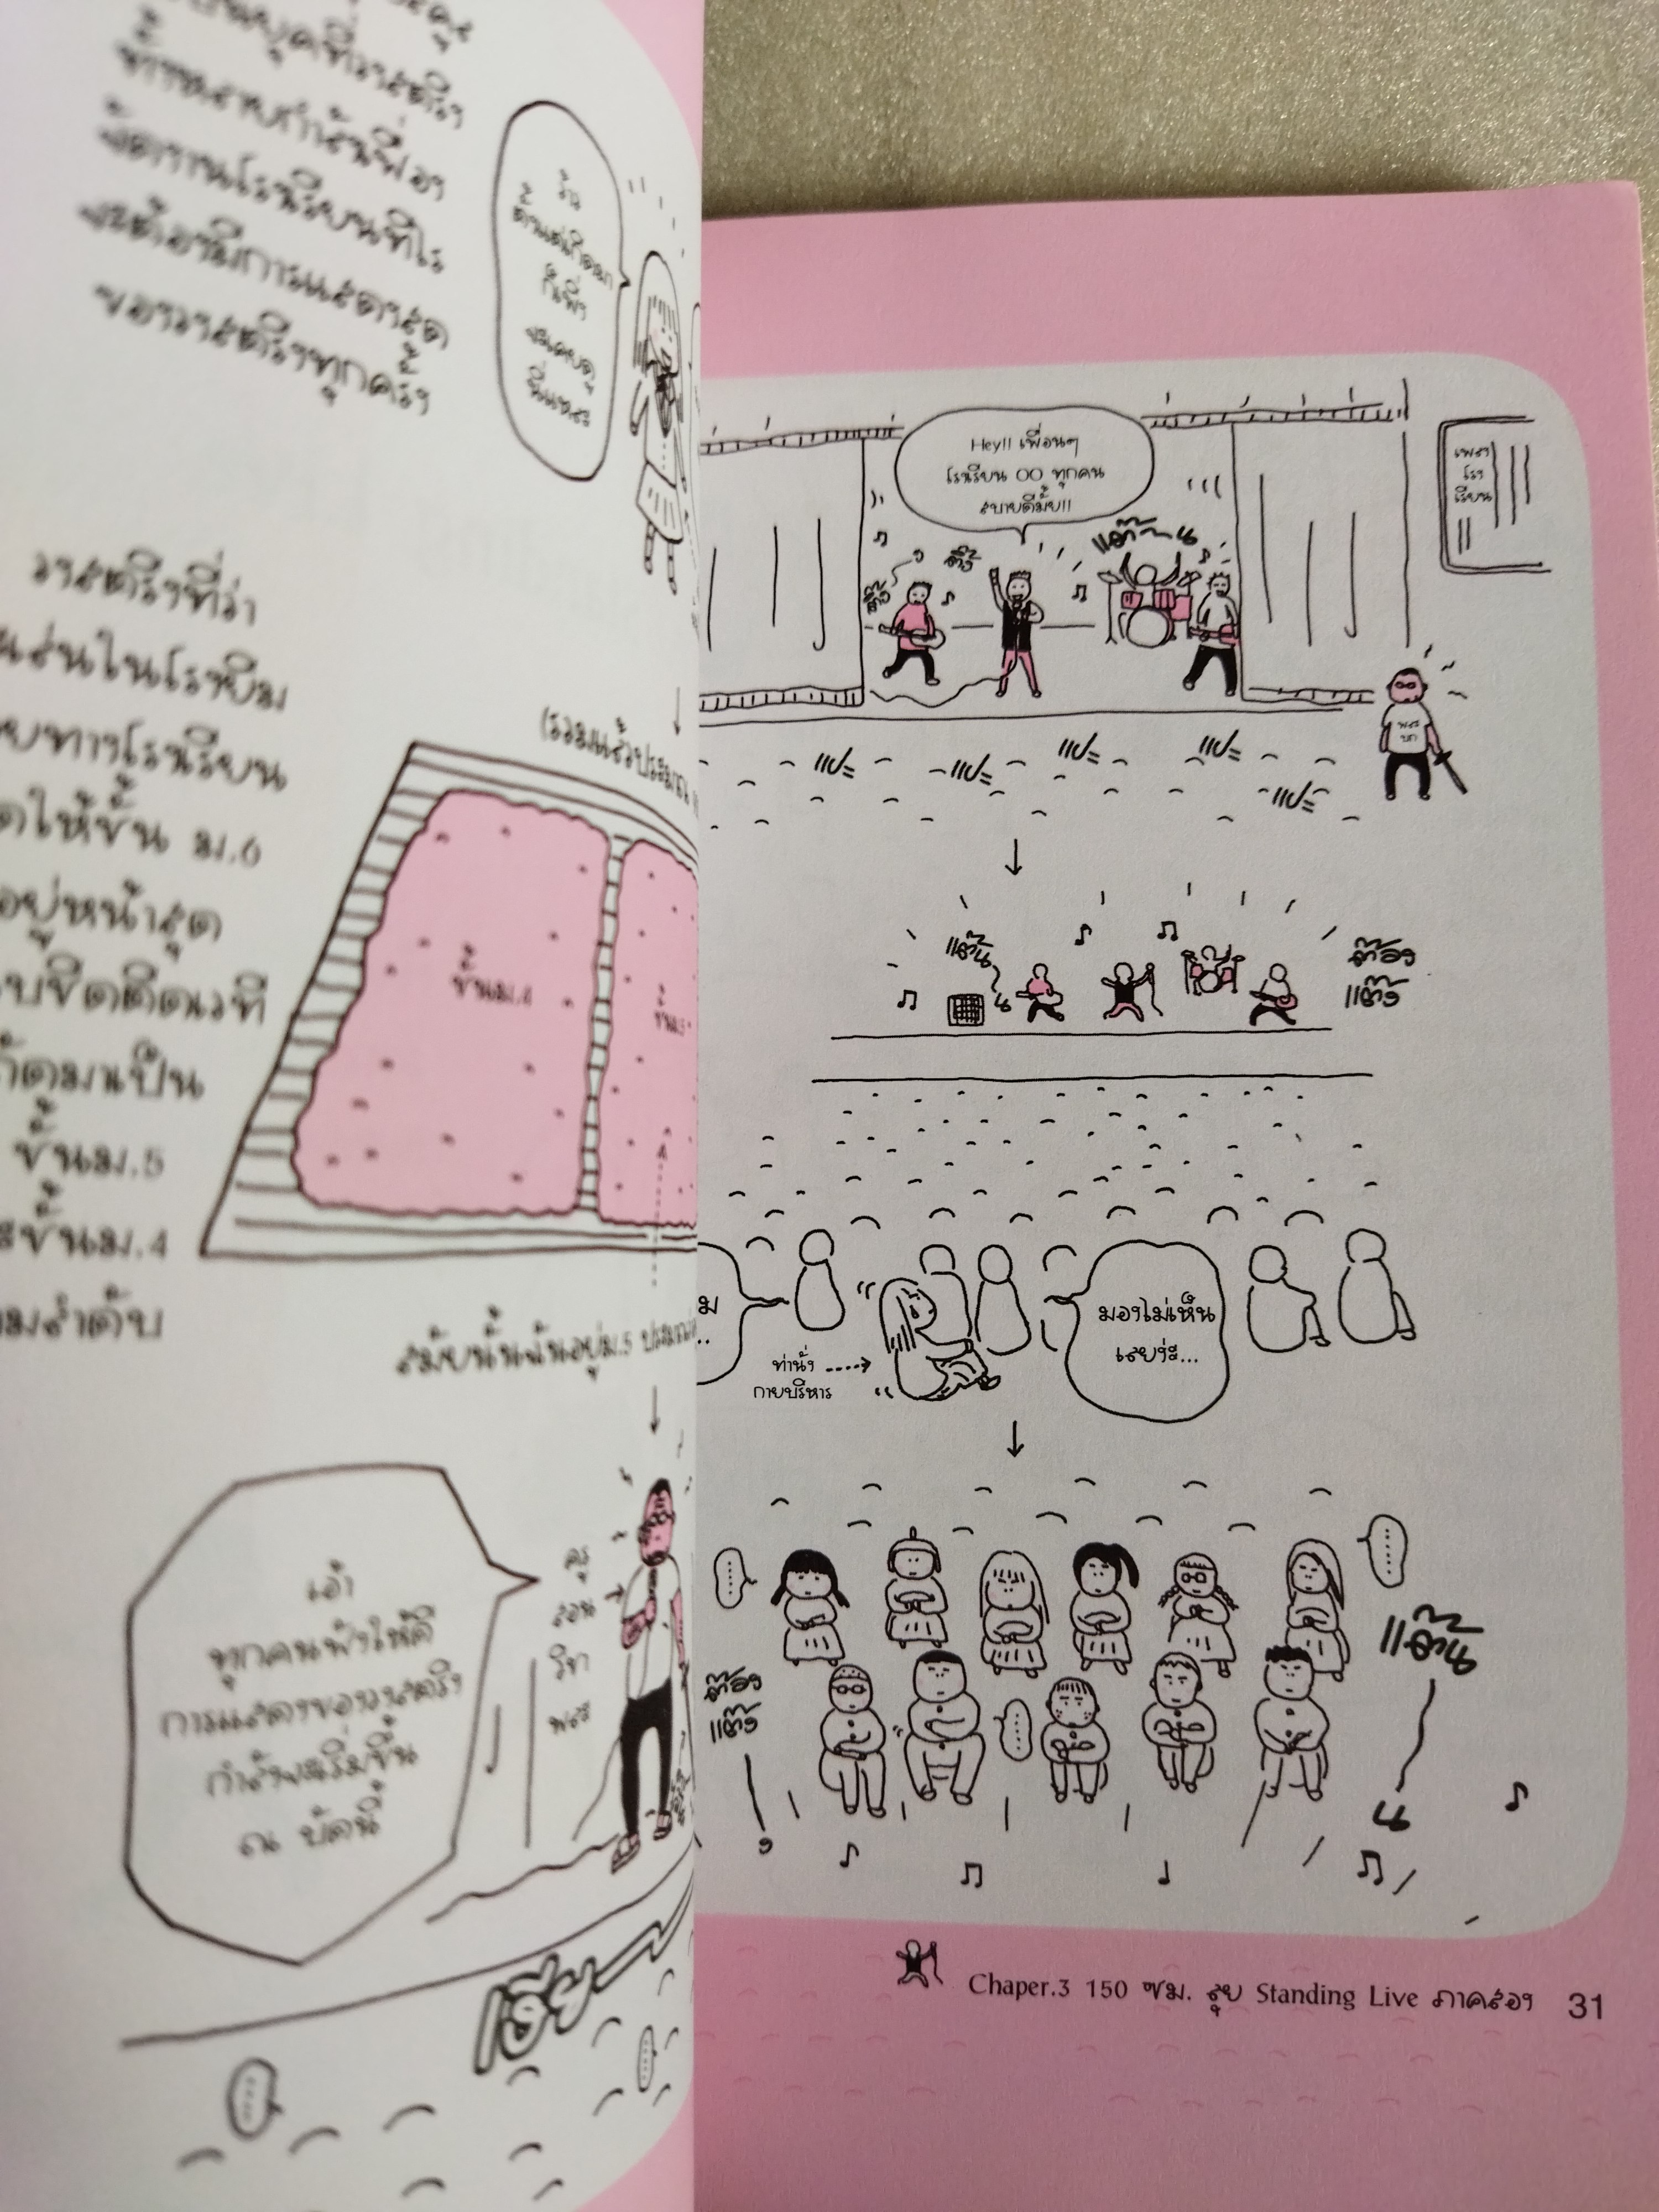 ขึ้นยุคที่วงสตริง
จัดงานโรงเรียนทีไร
จะต้องมีการแสดงสด
ของวงสตริงทุกครั้ง
ก็เพิ่ง
จะเคยดู
นี่แหละ
วงสตริงที่ว่า
แสดงในโรงยิม
โดยทางโรงเรียน
ให้ชั้น ม.6
อยู่หน้าสุด
ติดเวที
ถัดมาเป็น
ชั้นม.5
ชั้นม.4
ตามลำดับ
(รวมแล้วประมาณ
ชั้นม.4
ชั้นม.
สมัยนั้นฉันอยู่ม.5 ประมาณ
เอ้า
ทุกคนฟังให้ดี
การแสดงของวงสตริง
กำลังจะเริ่มขึ้น
ณ บัดนี้
ครู
สอน
วิชา
พละ
เฮ้ย
Hey!! เพื่อนๆ
โรงเรียน OO ทุกคน
สบายดีมั้ย!!
เพลง
โรง
เรียน
ตึ๊ง
ตึ๊ง
แต๊น
พละ
บก
แปะ
แปะ
แปะ
แปะ
แปะ
แต๊น
ต๊อง
แต๊ง
ม
..
ท่านั่ง
กายบริหาร
มองไม่เห็น
เลยง่ะ...
ต๊อง
แต๊ง
แต๊น
น
Chaper.3 150 ซม. ลุย Standing Live ภาคสอง 31